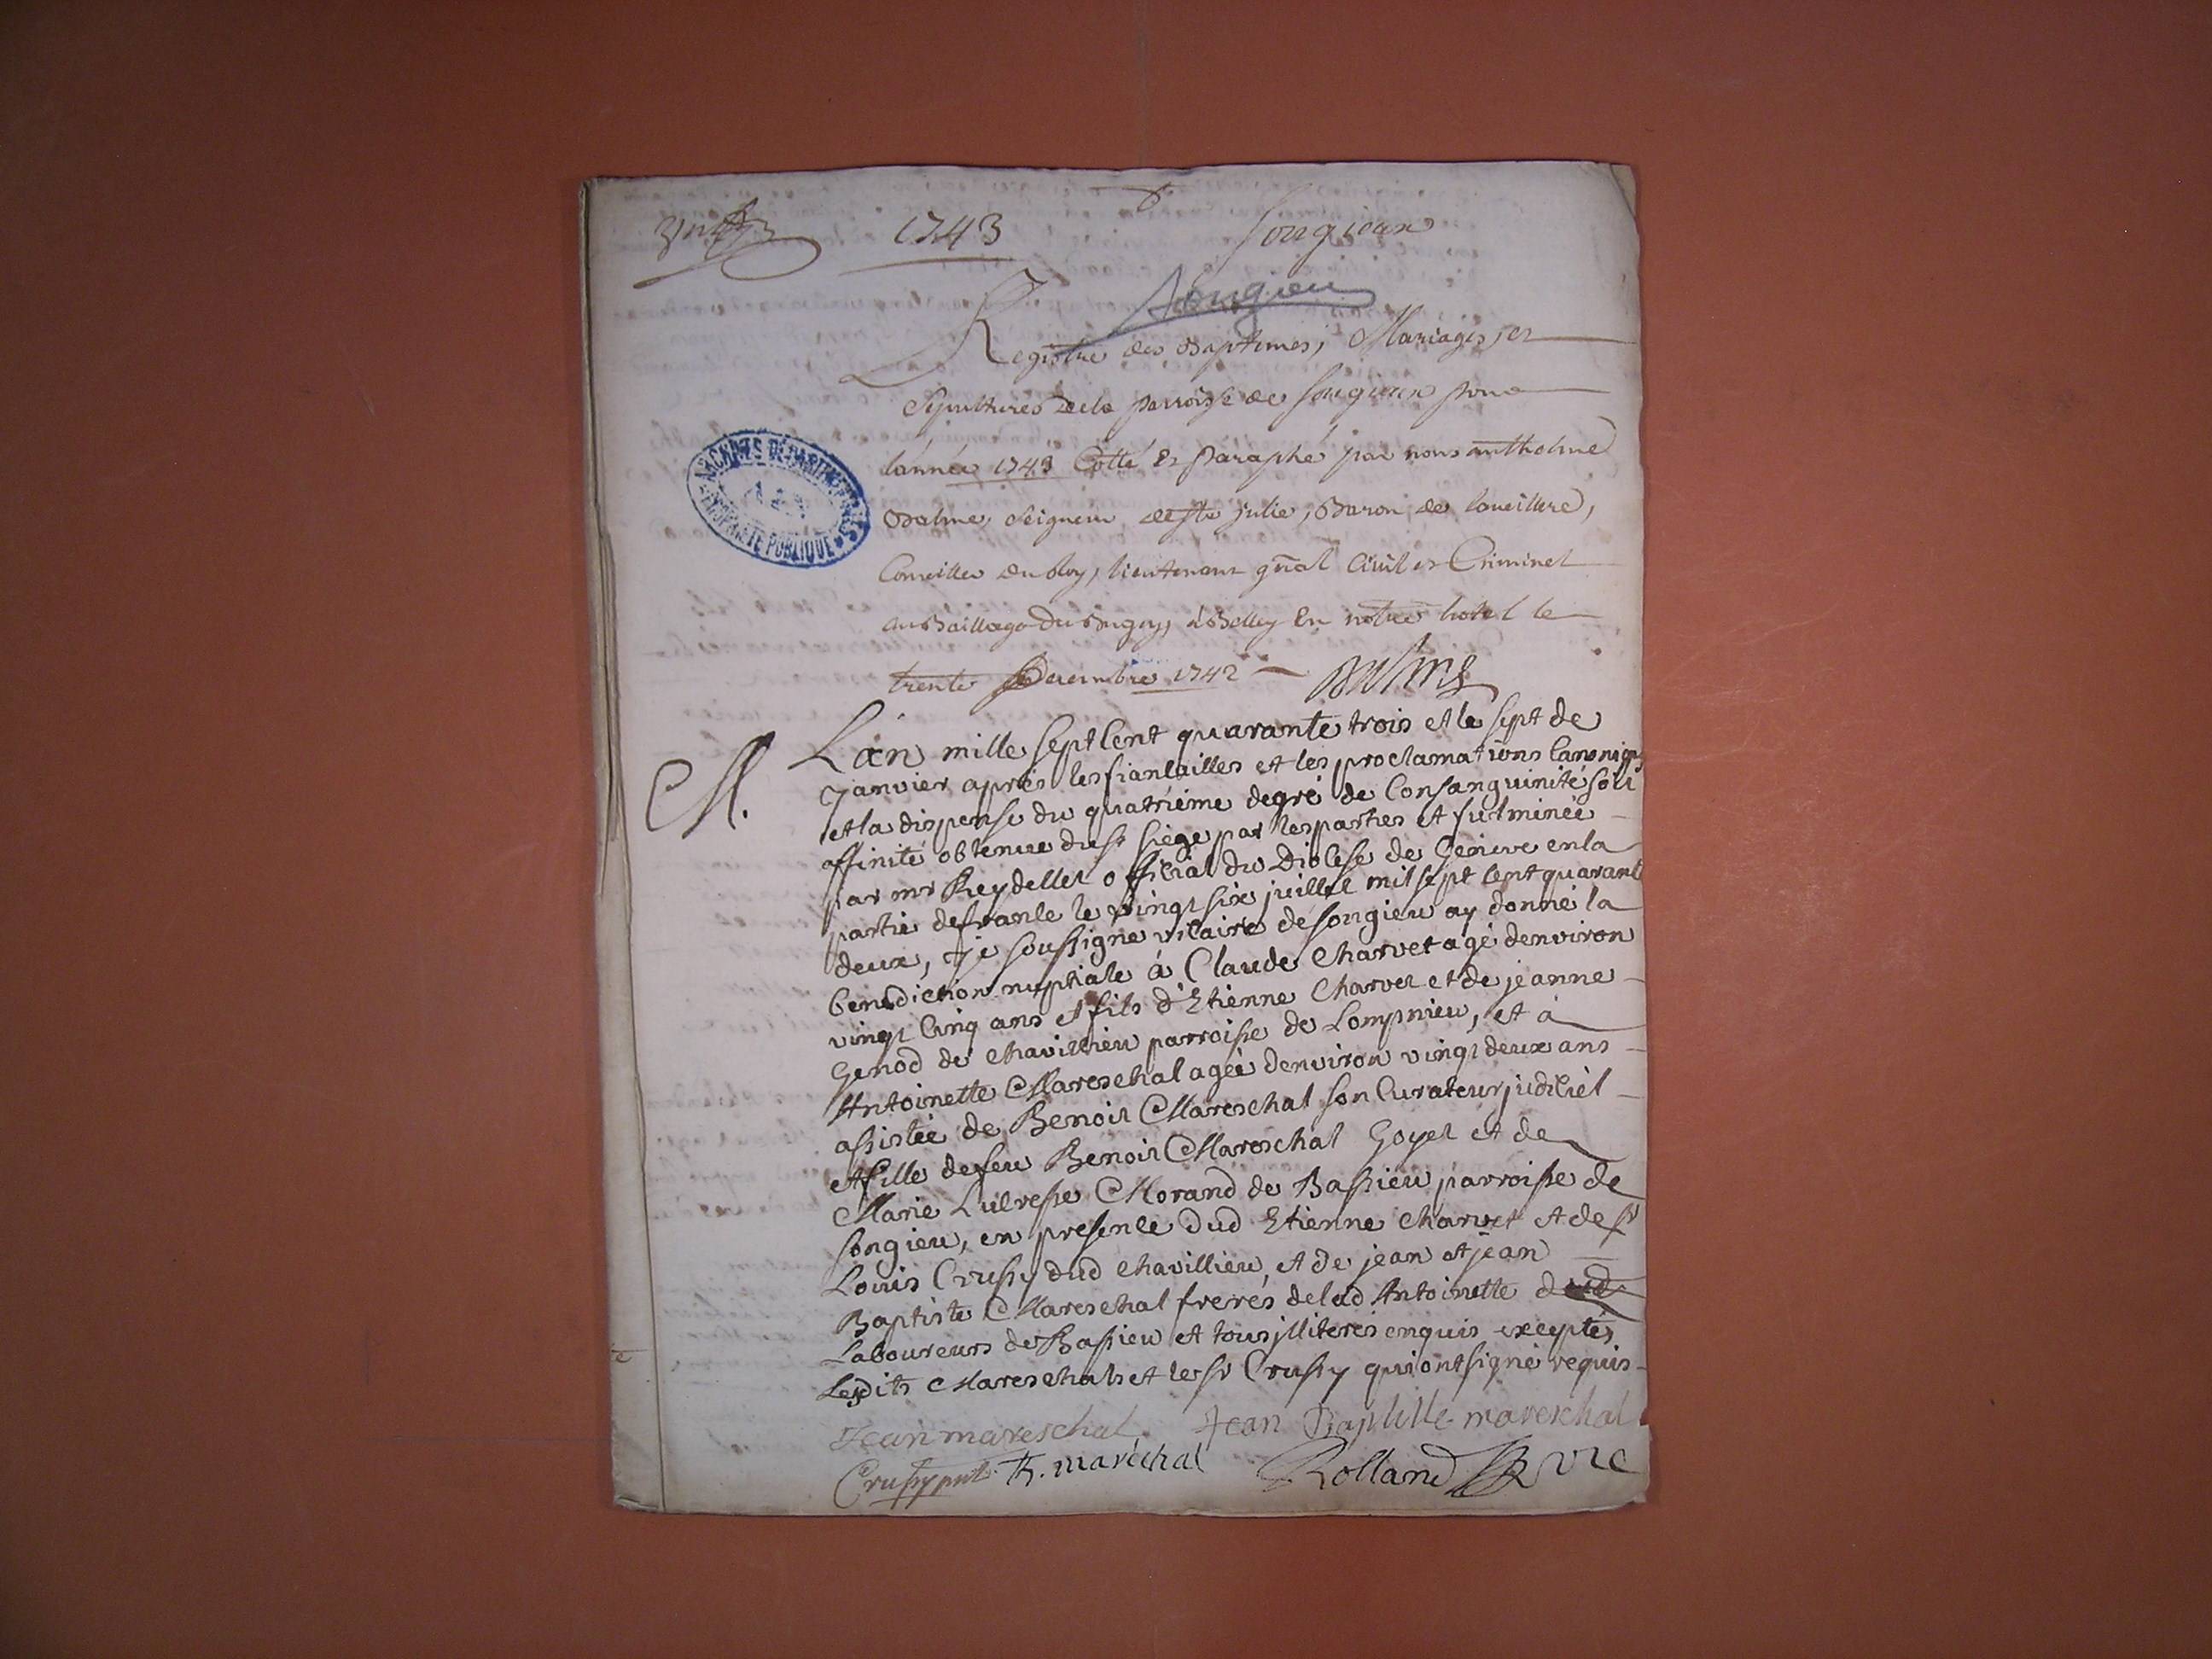 1743
Songieux
Songieu
Registre des Baptemes, Mariages, et
Sepultures de la parroisse de Songieux pour
l'année 1743 Cotté et Paraphé par nous anthelme
Balme, seigneur de Ste julie, Baron de
Conseiller du Roy, lieutenant gñal Civil et Criminel
au Bailliage du Bugey, à Belley En notre hotel le
trente Decembre 1742 Balme
ARCHIVES DÉPARTEMENTALES
AIN
PROPRIÉTÉ PUBLIQUE
M.
L'an mille sept Cent quarante trois et le sept de
Janvier aprés les fiancailles et les proclamations Canoniqs
et la dispense du quatriéme degré de Consanguinité
affinité obtenue du st siége par les parties et fulminée
par mr Reydellet official du Diocese de Geneve en la
partie de france le vingt six juillet mil sept cent quarante
deux, Je soussigné vicaire de songieu ay donné la
benediction nuptiale à Claude Charvet agé denviron
vingt Cinq ans et fils d'Etienne Charvet et de jeanne
Genod de Chavillieu parroisse de Lompnieu, et à
Antoinette Mareschal agée denviron vingt deux ans
assistée de Benoit Mareschal son Curateur judiciel
et fille de feu Benoit Mareschal Goyet et de
Marie Morand de Bassieu parroisse de
songieu, en presence dud Etienne Charvet et de sr
Louis Crussy dud Chavillieu, et de jean et jean
Baptiste Mareschal freres de lad Antoinette
Laboureurs de Bassieu et tous jlliterés enquis exceptés
Lesdits Mareschals et le sr Crussy qui ont signé requis
Jean mareschal Jean Baptiste mareschal
Crussy pnt B. maréchal Rolland vic